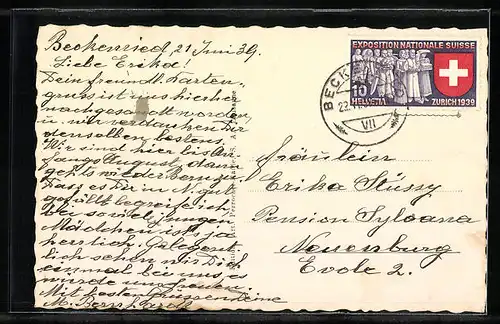 Beckenried, 21 Juni 39.
Liebe Erika!
Dein freundl. Karten-
gruss ist uns hierher
nachgesandt worden
u. wir verdanken Dir
denselben bestens.
Wir sind hier bis An-
fangs August, dann
geht's wieder
Dass es Dir in N. gut
gefällt begreife ich
bei soviel jungen
Mädchen ist's ja
herrlich. Gelegent-
lich sehen wir Dich
einmal bei uns es
würde uns freuen.
Mit besten Grüssen Deine
M. Bernhardt
EXPOSITION NATIONALE SUISSE
10
HELVETIA
ZURICH 1939
BECK
22.
VII
Fräulein
Erika Stüssy
Pension Sylvana
Neuenburg
Evole 2.